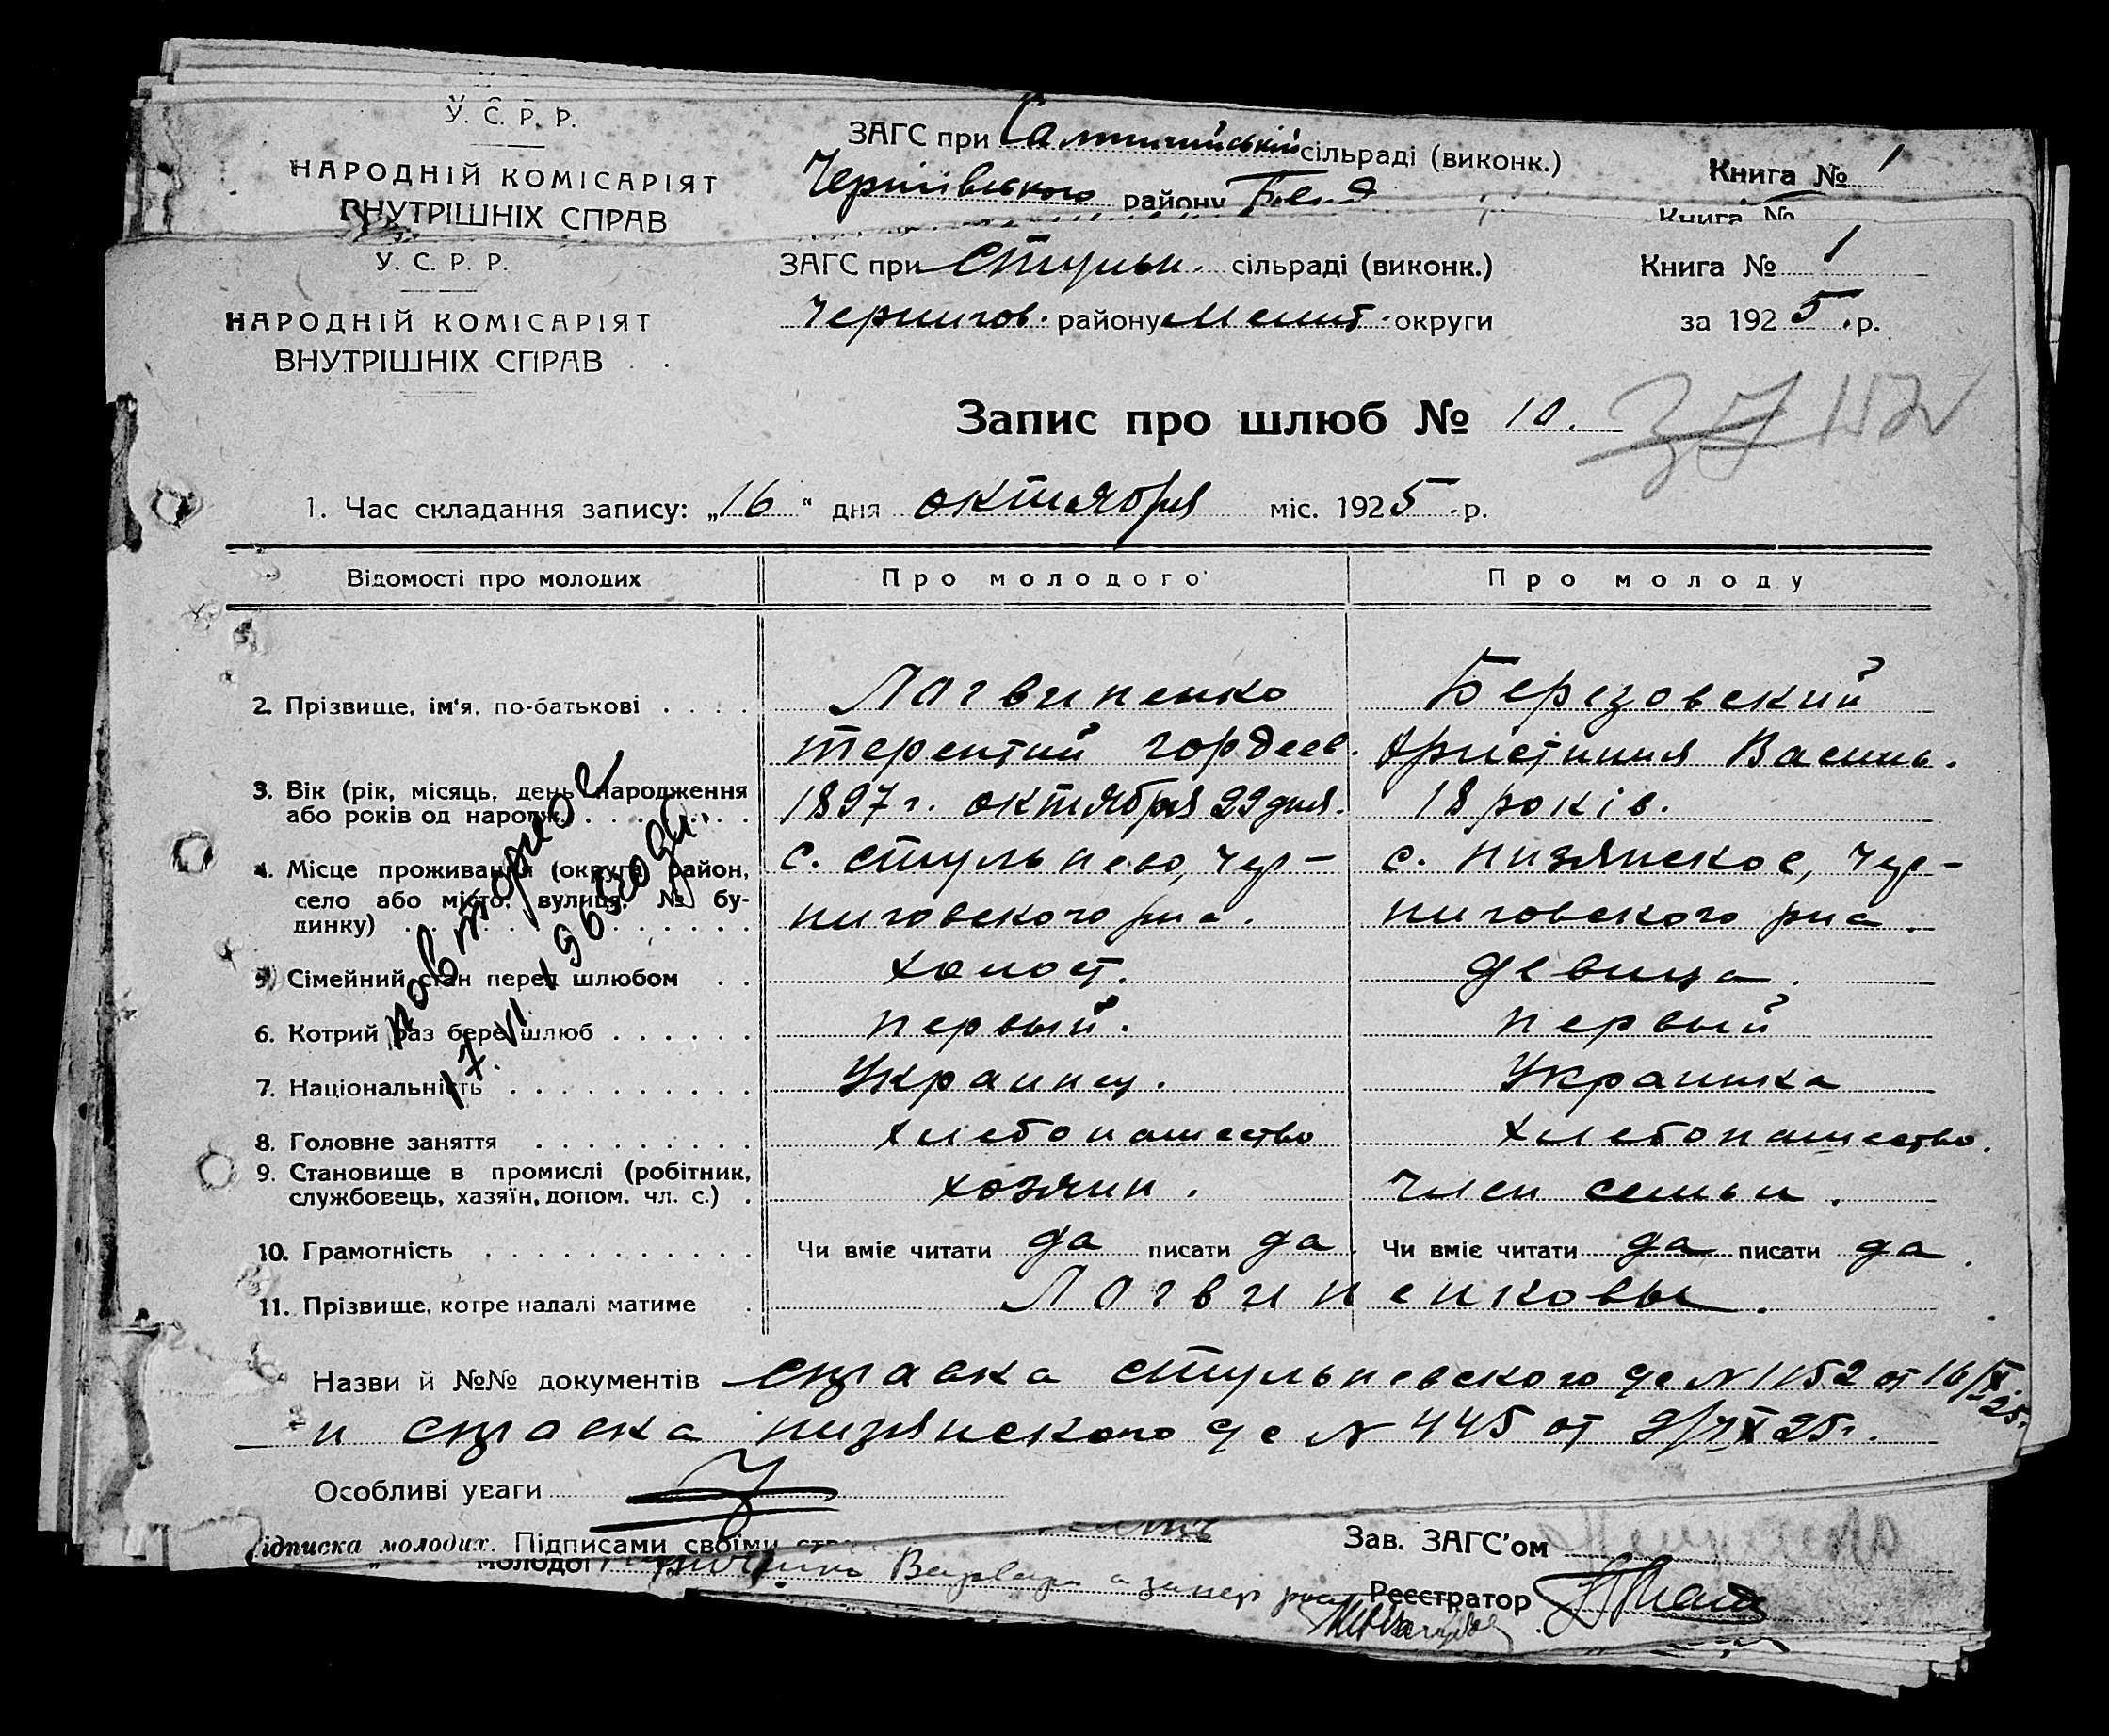 У. С. Р. Р.
НАРОДНІЙ КОМІСАРІЯТ
ВНУТРІШНІХ СПРАВ
ЗАГС при сільраді (виконк.)
Чернігівського району
Книга № 1
Книга №
У. С. Р. Р.
НАРОДНІЙ КОМІСАРІЯТ
ВНУТРІШНІХ СПРАВ
ЗАГС при Стульн. сільраді (виконк.)
Чернигов. району Мелит. округи
Книга № 1
за 1925 р.
Запис про шлюб № 10.
37 152
1. Час складання запису: „16“ дня октября міс. 1925 р.
Відомості про молодих Про молодого Про молоду
2. Прізвище, ім'я, по-батькові . . . . Логвиненко Березовский
терентий гордеев. христиния Василь.
3. Вік (рік, місяць, день народження 1897 г. октября 22 дня. 18 років.
або років од народж.) . . . . . . .
4. Місце проживання (округа, район, с. стульнево, Чер- с. низянское, Чер-
село або місто, вулиця, № бу-
динку) . . . . . . . . . . ниговского р-на. ниговского р-на.
5. Сімейний стан перед шлюбом . . холост. девица.
6. Котрий раз бере шлюб . . . . . . первый. первый
7. Національність . . . . . . . . . Украинец. Украинка
8. Головне заняття . . . . . . . . . хлебопашество хлебопашество.
9. Становище в промислі (робітник,
службовець, хазяїн, допом. чл. с.) . хозяин. Член семьи.
10. Грамотність . . . . . . . . . . . Чи вміє читати да писати да. Чи вміє читати да писати да.
11. Прізвище, котре надалі матиме . Логвиненковы.
повторное
17. VI 1 96 года.
Назви й №№ документів справка стульневского с/с N 1152 от 16/X 25.
и справка низянского с/с N 445 от
Особливі уваги
ідписка молодих. Підписами своїми
молодої Варвара а за неї
Зав. ЗАГС'ом
Реєстратор